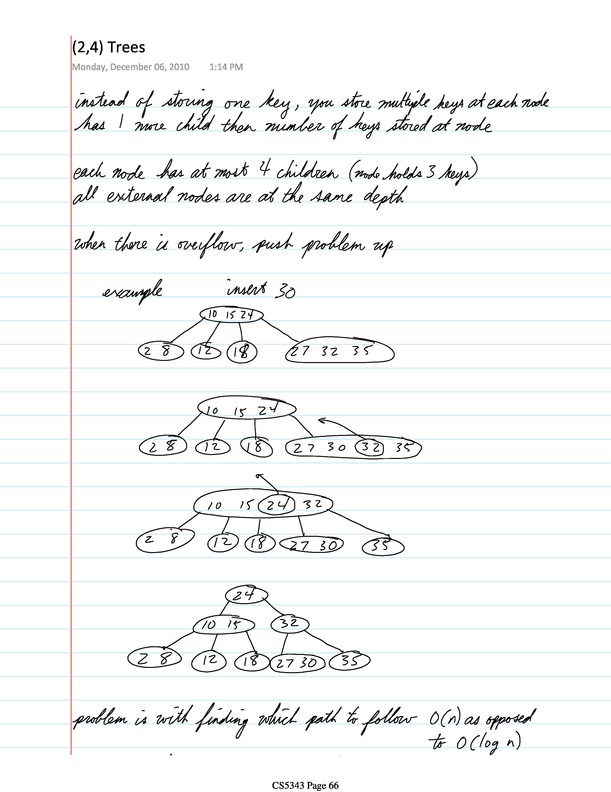 (2,4) Trees
Monday, December 06, 2010 1:14 PM
instead of storing one key, you store multiple keys at each node
has 1 more child then number of keys stored at node
each node has at most 4 children (node holds 3 keys)
all external nodes are at the same depth
when there is overflow, push problem up
example insert 30
10 15 24
2 8 12 18 27 32 35
10 15 24
2 8 12 18 27 30 32 35
10 15 24 32
2 8 12 18 27 30 35
24
10 15 32
2 8 12 18 27 30 35
problem is with finding which path to follow O(n) as opposed
to O(log n)
CS5343 Page 66